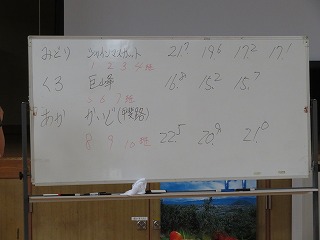 みどり シャインマスカット 21.7 19.6 17.2 17.1
1 2 3 4 班
くろ 巨峰 16.8 15.2 15.7
5 6 7 班
あか かいじ(甲斐路) 22.5 20.9 21.0
8 9 10 班